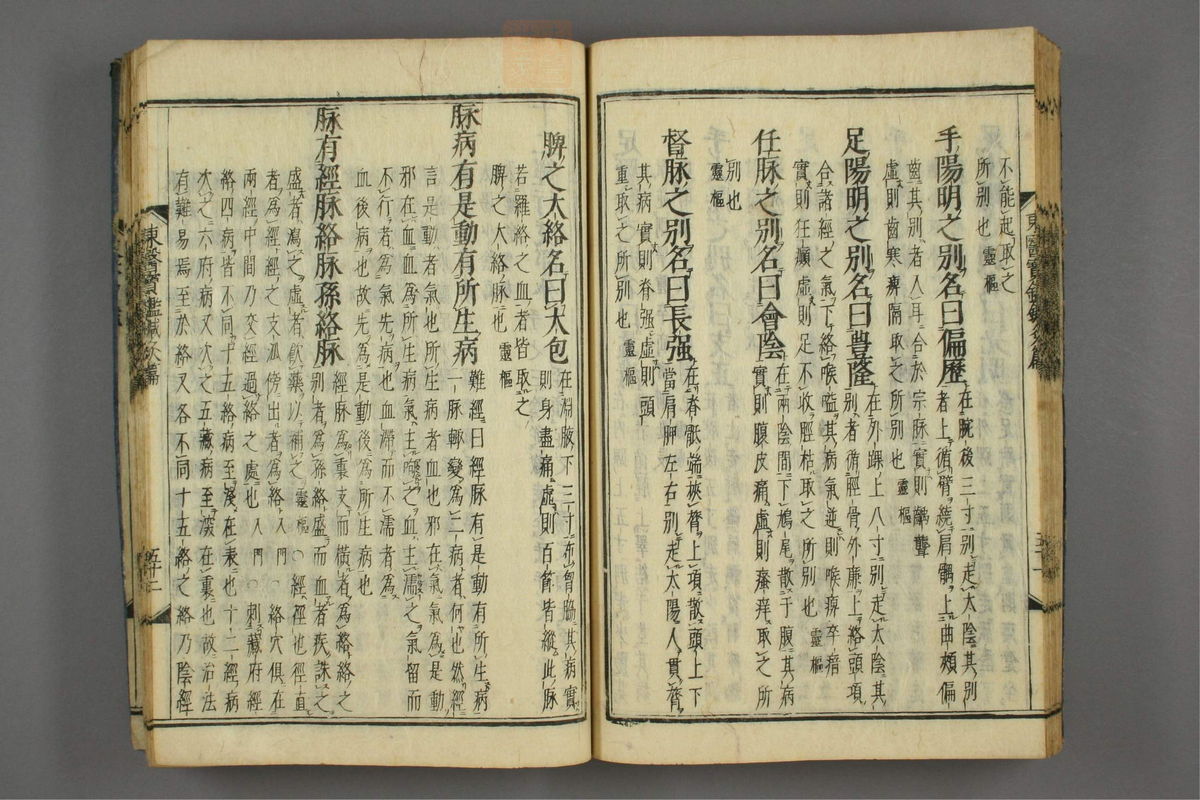 不能起取之
所別也靈樞
手陽明之別名曰偏歷在腕後三寸別走太陰其別
者上循臂繞肩髃上曲頰偏
齒其別者人耳合於宗脉實則齲聾
虛則齒寒痺隔取之所別也靈樞
足陽明之別名曰豊隆在外踝上八寸別走太陰其
別者循脛骨外廉上絡頭項
合諸經之氣下絡喉嗌其病氣逆則喉痺卒瘖
實則狂癲虛則足不收脛枯取之所別也靈樞
任脉之別名曰會陰在兩陰間下鳩尾散于腹其病
實則腹皮痛虛則瘙痒取之所
別也
靈樞
督脉之別名曰長强在脊骶端挾膂上項散頭上下
當肩胛左右別走太陽人貫膂
其病實則脊强虛則頭
重取之所別也靈樞
脾之大絡名曰大包在淵腋下三寸布胷脇其病實
則身盡痛虛則百節皆縱此脉
若羅絡之血者皆取之
脾之大絡脉也靈樞
脉病有是動有所生病難經曰經脉有是動有所生病
一脉輒變爲二病者何也然經
言是動者氣也所生病者血也邪在氣氣爲是動
邪在血血爲所生病氣主呴之血主濡之氣留而
不行者爲氣先病也血滯而不濡者爲
血後病也故先爲是動後爲所生病也
脉有經脉絡脉孫絡脉經脉爲裏支而橫者爲絡絡之
別者爲孫絡盛而血者疾誅之
盛者瀉之虛者飮藥以補之靈樞○經徑也徑直
者爲經經之支派傍出者爲絡入門○絡穴俱在
兩經中間乃交經過絡之處也入門○刺藏府經
絡四病皆不同十五絡病至淺在表也十二經病
次之六府病又次之五藏病至深在裏也故治法
有難易焉至於絡又各不同十五絡之絡乃陰經
東醫寶鑑鍼灸篇
五十二
東醫寶鑑鍼灸篇